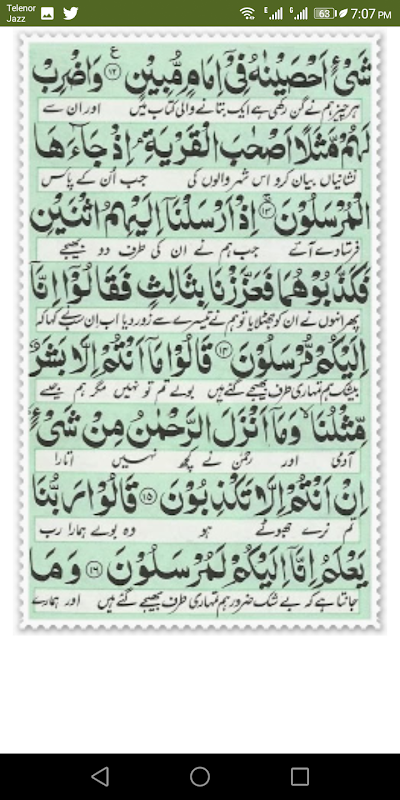 Telenor
Jazz
E
G
63
7:07 PM
شَیْءٍ اَحْصَیْنٰهُ فِیْۤ اِمَامٍ مُّبِیْنٍ ﴿۱۲﴾ ع وَاضْرِبْ
ہر چیز ہم نے گن رکھی ہے ایک بتانے والی کتاب میں اور ان سے
لَهُمْ مَّثَلًا اَصْحٰبَ الْقَرْیَةِ ۘ اِذْ جَآءَهَا
نشانیاں بیان کرو اس شہر والوں کی جب ان کے پاس
الْمُرْسَلُوْنَ ﴿۱۳﴾ اِذْ اَرْسَلْنَاۤ اِلَیْهِمُ اثْنَیْنِ
فرستادے آئے جب ہم نے ان کی طرف دو بھیجے
فَكَذَّبُوْهُمَا فَعَزَّزْنَا بِثَالِثٍ فَقَالُوْۤا اِنَّاۤ
پھر انہوں نے ان کو جھٹلایا تو ہم نے تیسرے سے زور دیا اب ان سب نے کہا کہ
اِلَیْكُمْ مُّرْسَلُوْنَ ﴿۱۴﴾ قَالُوْا مَاۤ اَنْتُمْ اِلَّا بَشَرٌ
بیشک ہم تمہاری طرف بھیجے گئے ہیں بولے تم تو نہیں مگر ہم جیسے
مِّثْلُنَا ۙ وَمَاۤ اَنْزَلَ الرَّحْمٰنُ مِنْ شَیْءٍ ۙ
آدمی اور رحمٰن نے کچھ نہیں اتارا
اِنْ اَنْتُمْ اِلَّا تَكْذِبُوْنَ ﴿۱۵﴾ قَالُوْا رَبُّنَا
تم نرے جھوٹے ہو وہ بولے ہمارا رب
یَعْلَمُ اِنَّاۤ اِلَیْكُمْ لَمُرْسَلُوْنَ ﴿۱۶﴾ وَمَا
جانتا ہے کہ بے شک ضرور ہم تمہاری طرف بھیجے گئے ہیں اور ہمارے